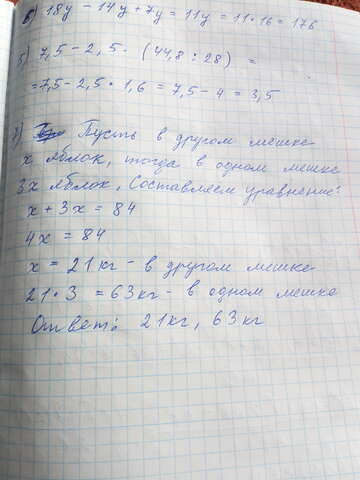 в) 18y - 14y + 7y = 11y = 11 · 16 = 176
7,5 - 2,5 · (44,8 : 28) =
= 7,5 - 2,5 · 1,6 = 7,5 - 4 = 3,5
Пусть в другом мешке
x яблок, тогда в одном мешке
3x яблок, Составляем уравнение:
x + 3x = 84
4x = 84
x = 21 кг - в другом мешке
21 · 3 = 63 кг - в одном мешке
Ответ: 21 кг, 63 кг